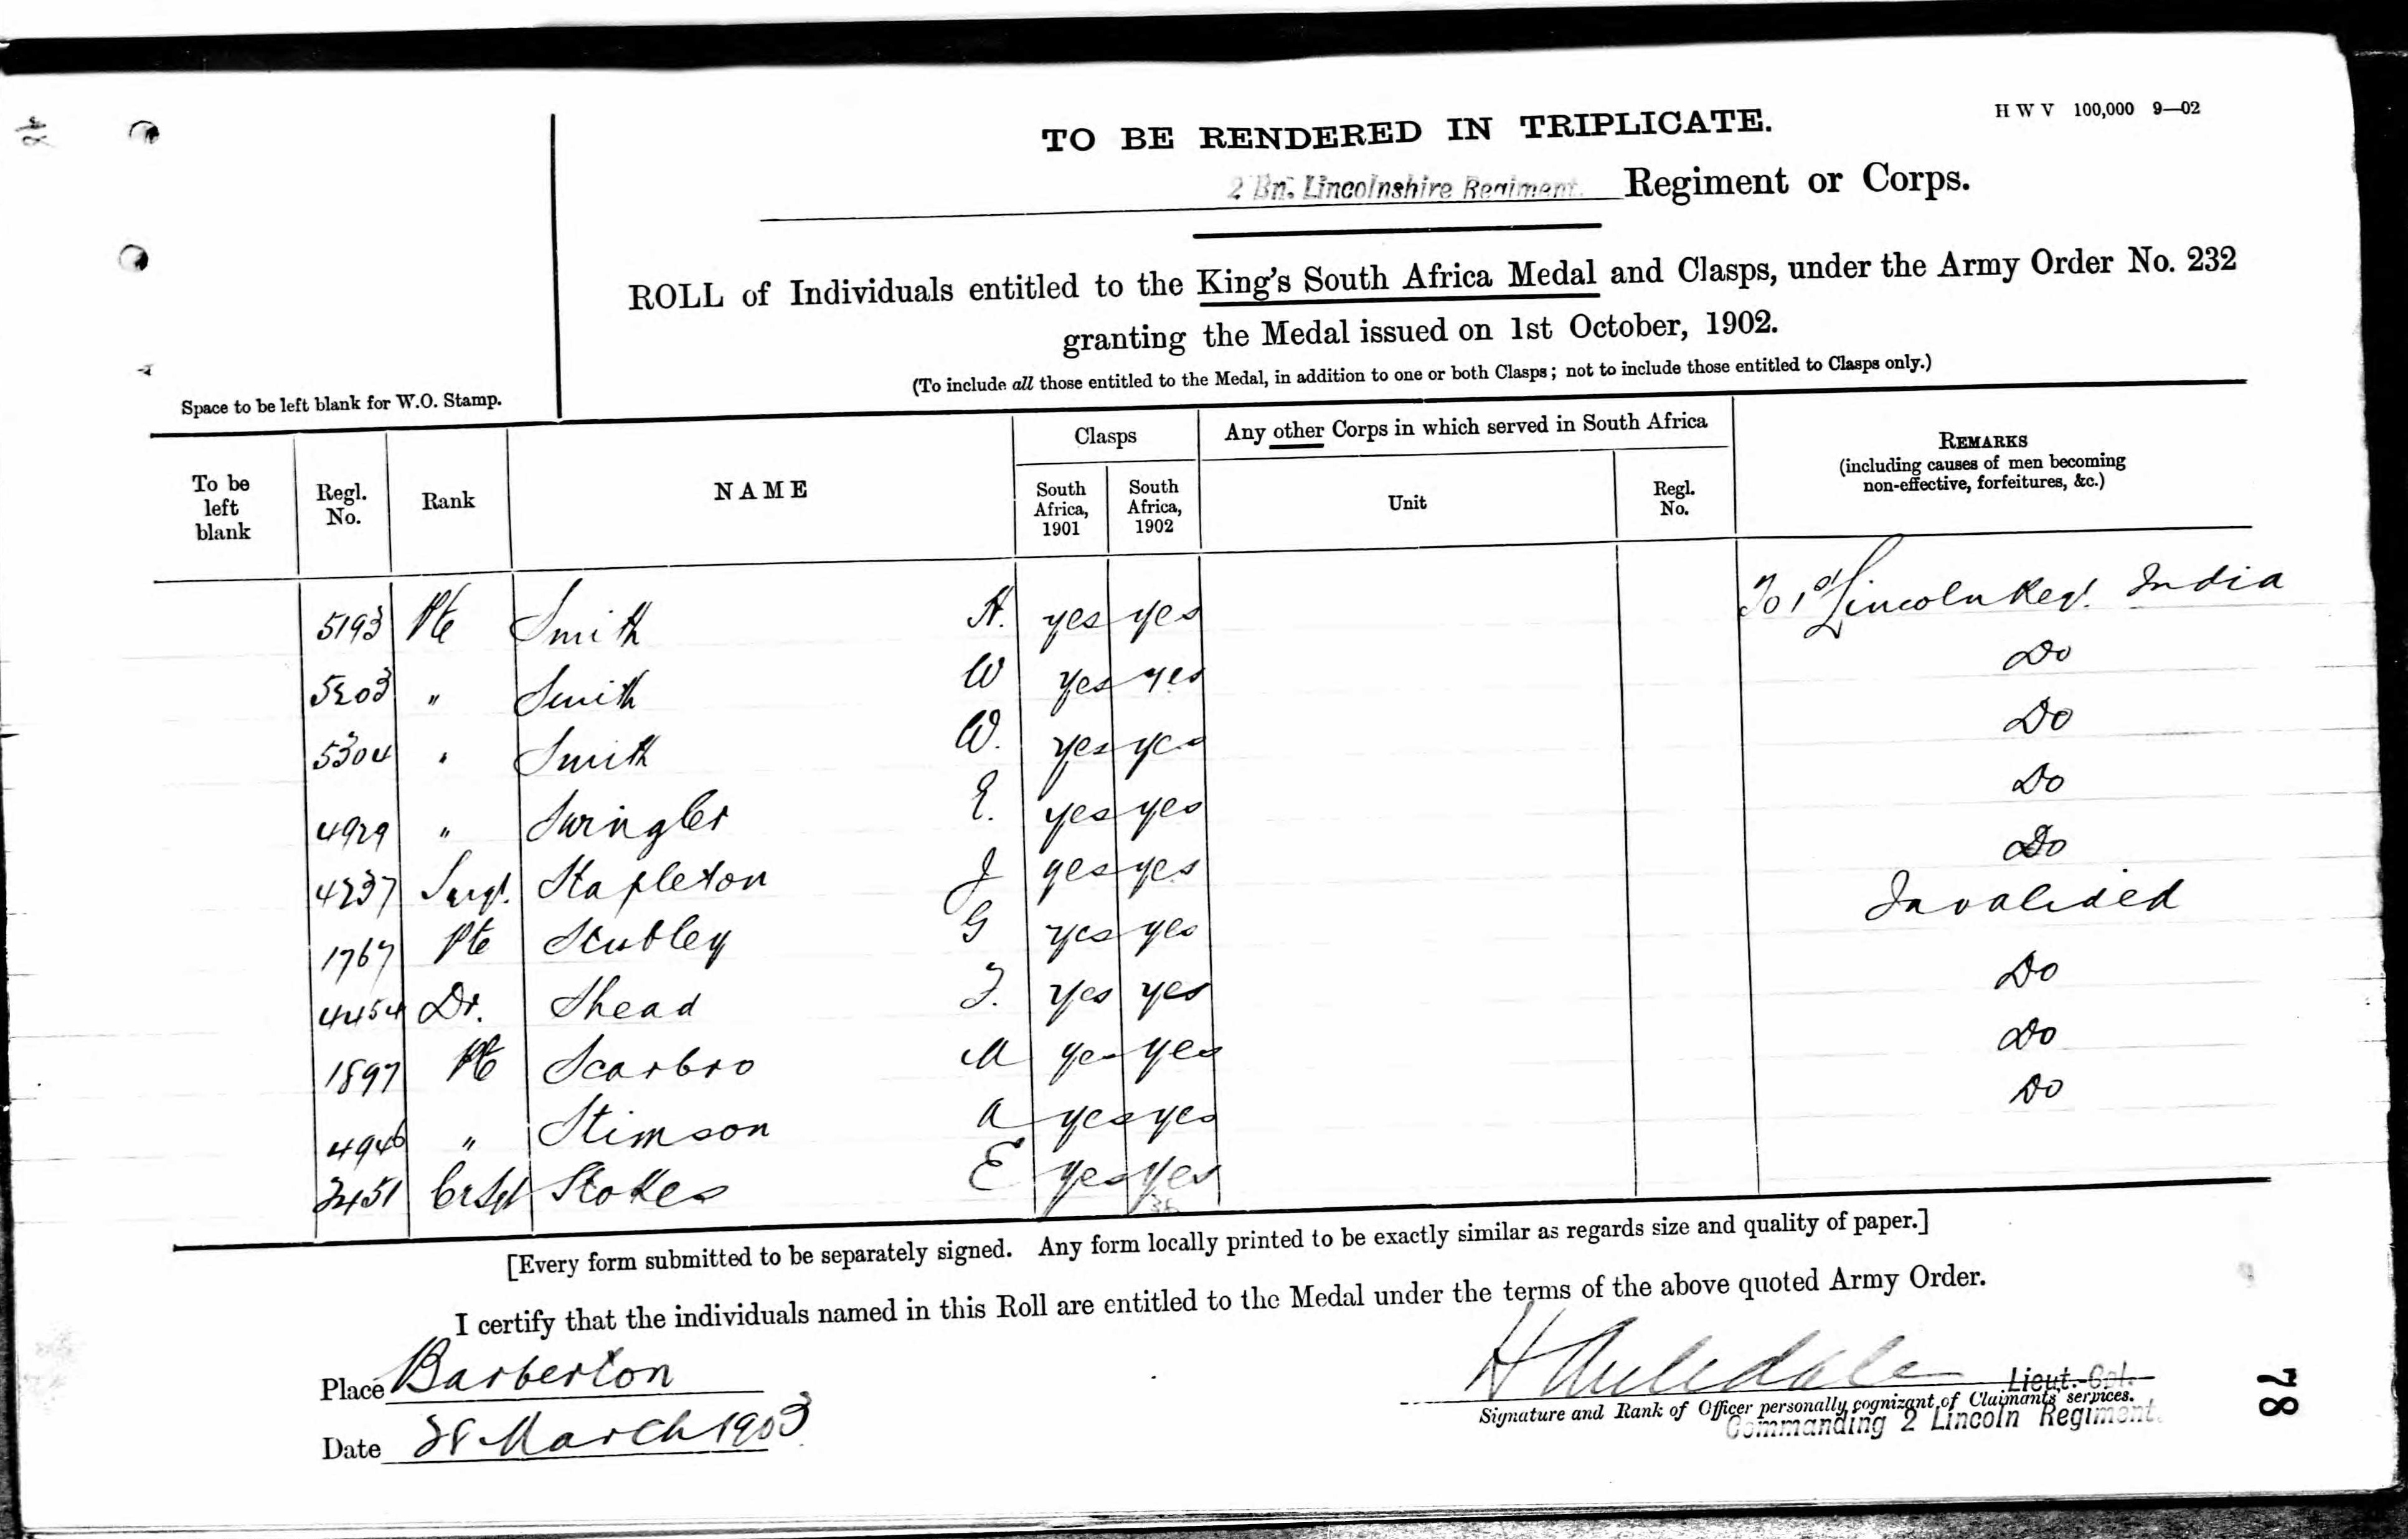 H W V 100,000 9—02
TO BE RENDERED IN TRIPLICATE.
2 Bn. Lincolnshire Regiment. Regiment or Corps.
ROLL of Individuals entitled to the King's South Africa Medal and Clasps, under the Army Order No. 232
granting the Medal issued on 1st October, 1902.
(To include all those entitled to the Medal, in addition to one or both Clasps; not to include those entitled to Clasps only.)
Space to be left blank for W.O. Stamp.
To be left blank Regl. No. Rank NAME Clasps South Africa, 1901 South Africa, 1902 Any other Corps in which served in South Africa Unit Regl. No. REMARKS (including causes of men becoming non-effective, forfeitures, &c.)
5193 Pte Smith H. yes yes To 1st Lincoln Regt. India
5203 " Smith W yes yes Do
5304 " Smith W. yes yes Do
4929 " Swingler E. yes yes Do
4237 Sergt. Stapleton J yes yes Do
1767 Pte Stubley G yes yes Invalided
4454 Dr. Shead F. yes yes Do
1897 Pte Scarbro M yes yes Do
4946 " Stimson A yes yes Do
2451 Cr Sgt Stokes E yes yes
36
[Every form submitted to be separately signed. Any form locally printed to be exactly similar as regards size and quality of paper.]
I certify that the individuals named in this Roll are entitled to the Medal under the terms of the above quoted Army Order.
Place Barberton
Lieut.-Col.
Signature and Rank of Officer personally cognizant of Claimants services.
Commanding 2 Lincoln Regiment.
Date 28 March 1903
78